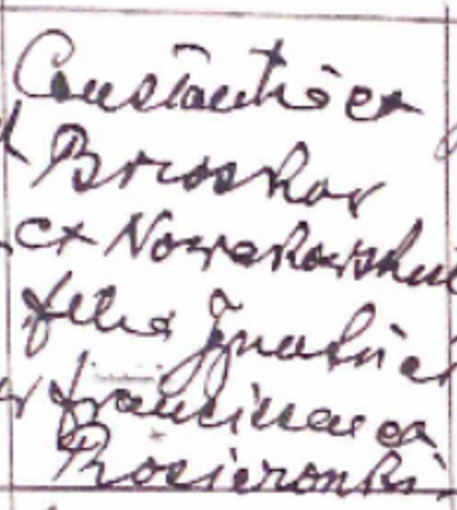 Constantia ex
Brioskov
ex Nowakowskie
filia Ignatii et
Franciscae ex
Kosieronki